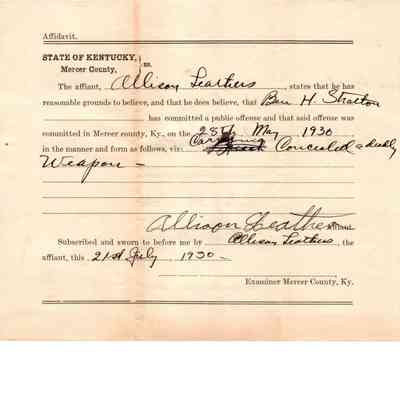 Affidavit.
STATE OF KENTUCKY, } ss.
Mercer County,
The affiant, Allison Leathers, states that he has
reasonable grounds to believe, and that he does believe, that Ben H. Stratton
has committed a public offense and that said offense was
committed in Mercer county, Ky., on the 28th May 1930
in the manner and form as follows, viz: Carrying Concealed a deadly
Weapon –
Allison Leathers affiant.
Subscribed and sworn to before me by Allison Leathers, the
affiant, this 21st July 1930 –
Examiner Mercer County, Ky.